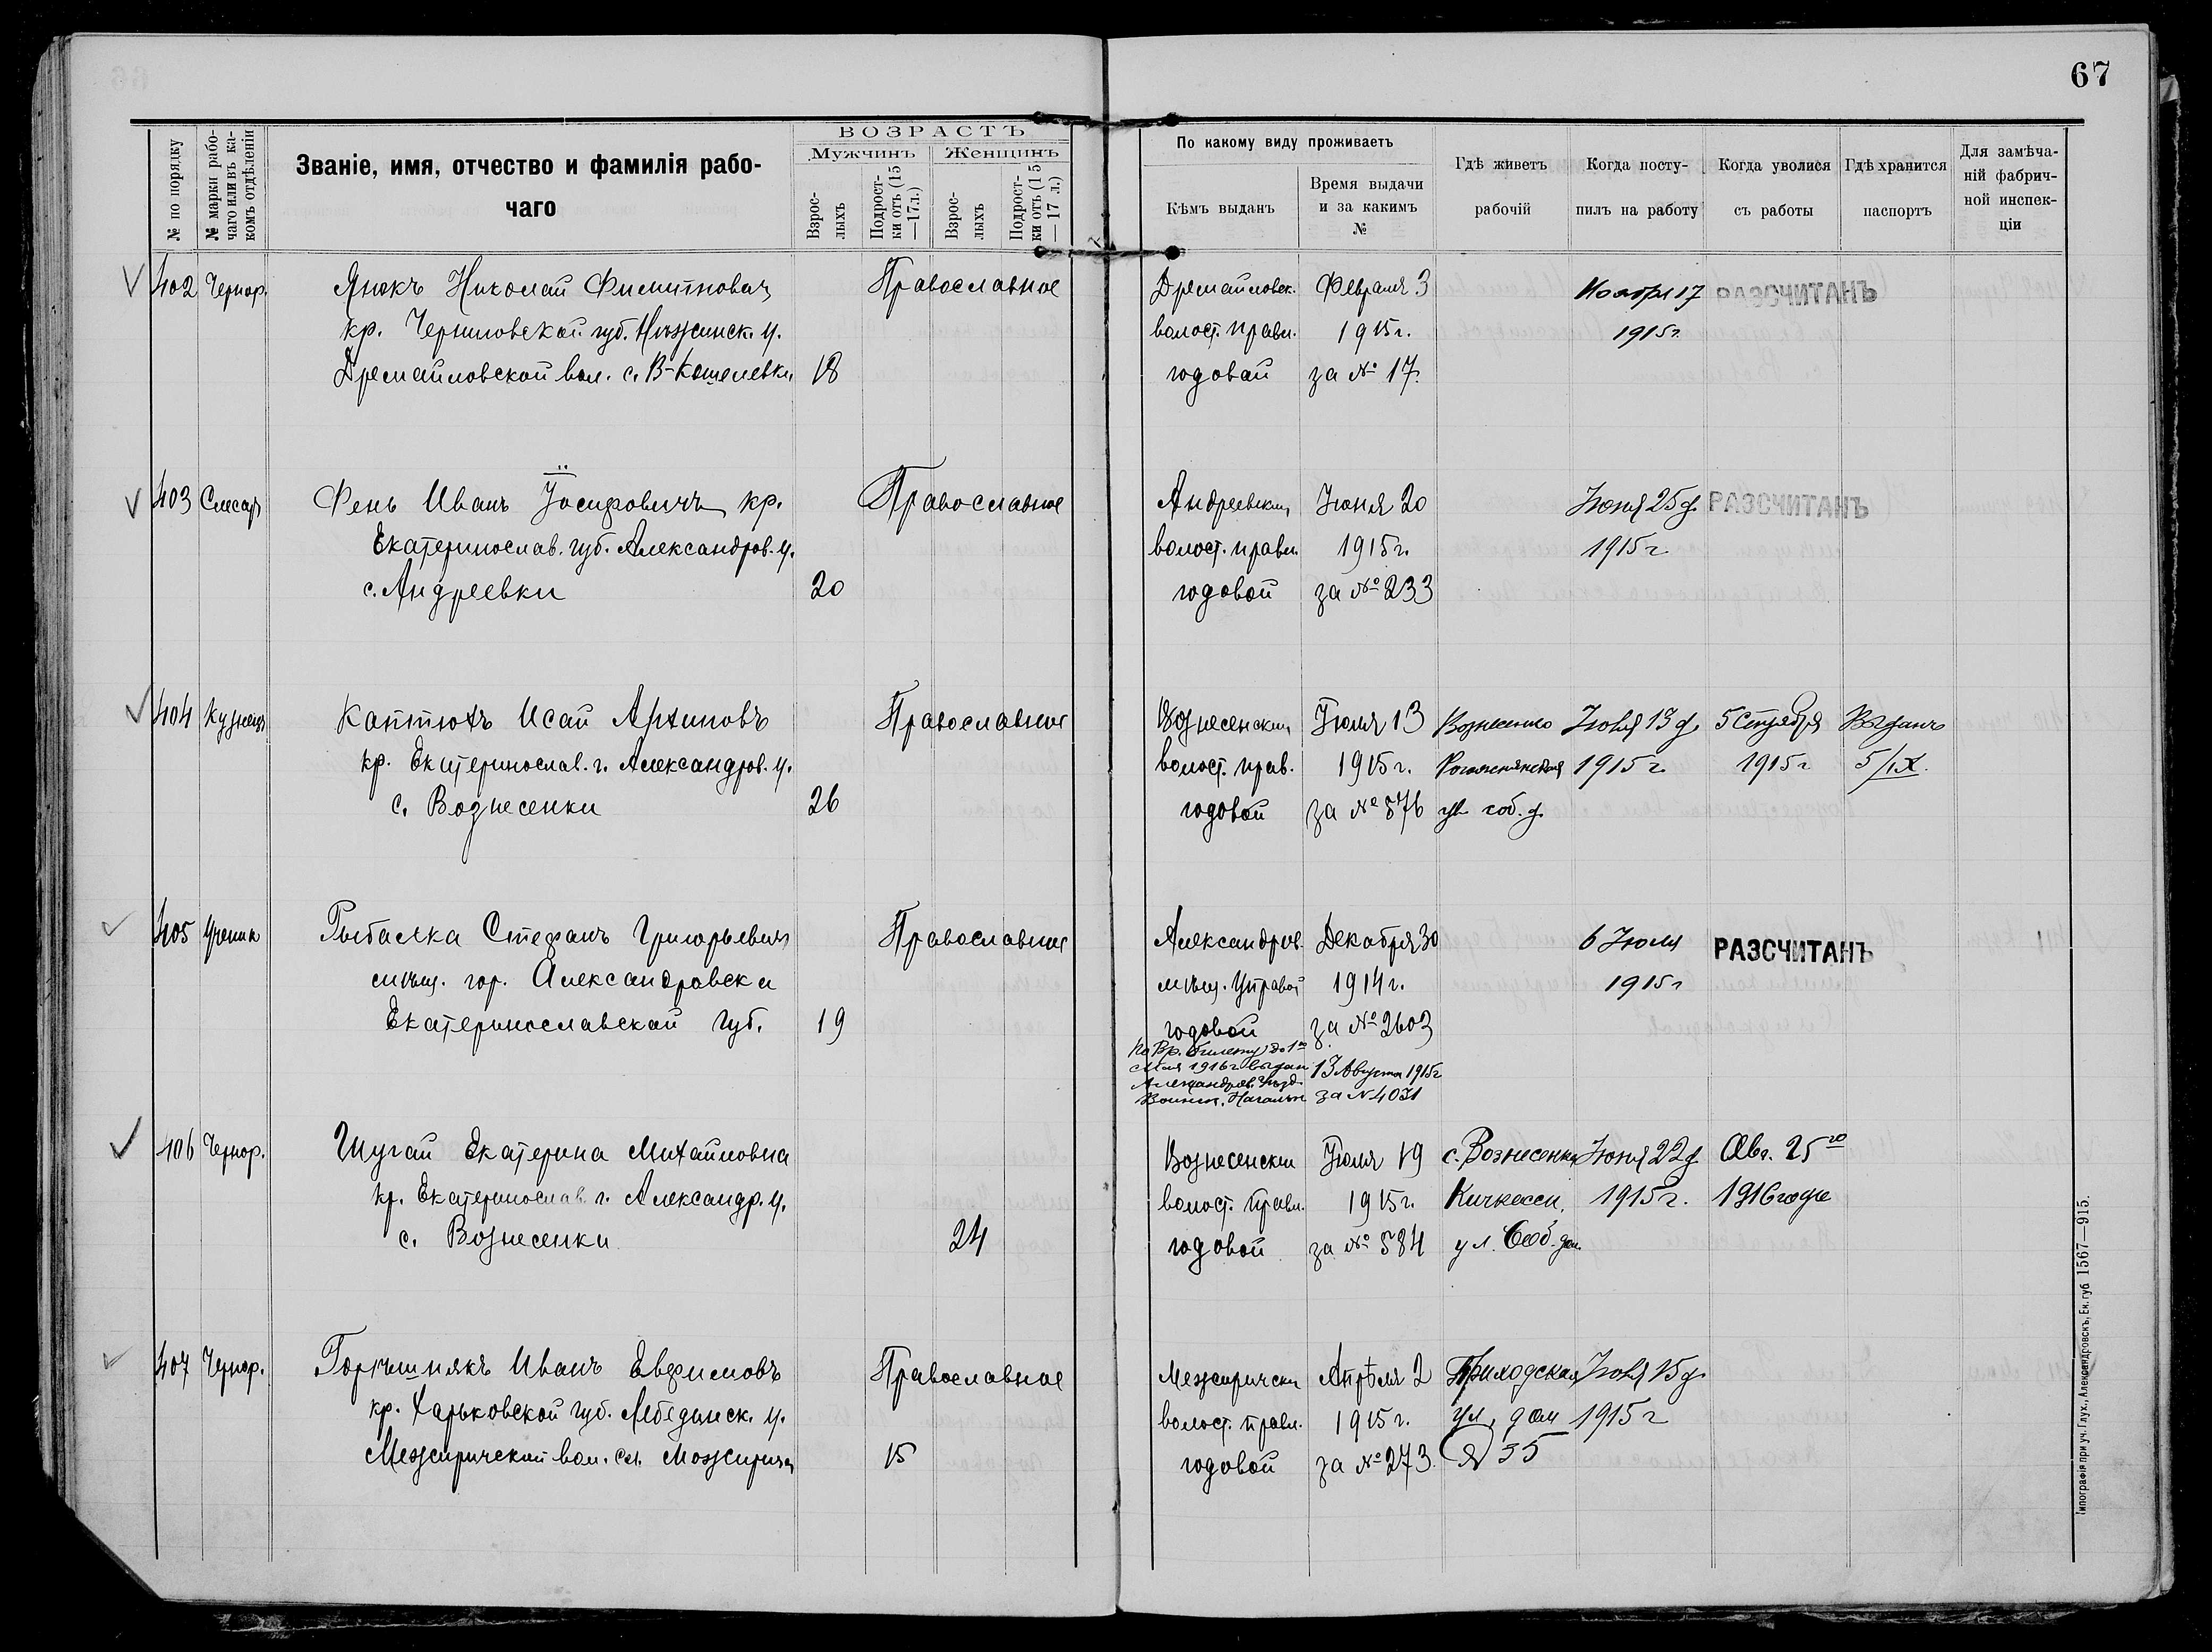 67
№ по порядку
№ марки рабо-
чаго или въ ка-
комъ отдѣленіи
Званіе, имя, отчество и фамилія рабо-
чаго
ВОЗРАСТЪ
Мужчинъ
Женщинъ
Взрос-
лыхъ
Подрост-
ки отъ (15
—17 л.)
Взрос-
лыхъ
Подрост-
ки отъ (15
— 17 л.)
По какому виду проживаетъ
Кѣмъ выданъ
Время выдачи
и за какимъ
№
Гдѣ живетъ
рабочій
Когда посту-
пилъ на работу
Когда уволися
съ работы
Гдѣ хранится
паспортъ
Для замѣча-
ній фабрич-
ной инспек-
ціи
402 Чернор. Янокъ Николай Филиппович Православное Дремайловск. Февраля 3 Ноября 17 РАЗСЧИТАНЪ
кр. Черниговской губ. Нѣжинск. у. волост. правл. 1915 г. 1915 г.
Дремайловской вол. с. В-Кошелевки 18 годовой за № 17.
403 Слесар Фень Иванъ Іосифовичъ кр. Православное Андреевским Іюня 20 Іюня 25 д. РАЗСЧИТАНЪ
Екатеринослав. губ. Александров. у. волост. правл. 1915 г. 1915 г
с. Андреевки 20 годовой за № 233
404 Кузнецъ Каптюхъ Исай Архиповъ Православное Вознесенским Іюля 13 Вознесенко 13 д. 5 Стября Выданъ
кр. Екатеринослав. г. Александров. у. волост. прав. 1915 г. 1915 г. 1915 г 5/IX.
с. Вознесенки 26 годовой за № 576 ул. соб. д.
405 Ученик Рыбалка Стефанъ Григорьевич Православное Александров. Декабря 30 6 Іюля РАЗСЧИТАНЪ
мѣщ. гор. Александровска мѣщ. Управой 1914 г. 1915 г
Екатеринославской губ. 19 годовой за № 2603
По Вр. билету до 1го
Мая 1916 г выдан 13 Августа 1915 г
Александров. Уѣзд.
Воинск. Начальн за № 4031
406 Чернор. Шугай Екатерина Михайловна Вознесенски Іюля 19 с. Вознесенка 22 д. Авг. 25го
кр. Екатеринослав. г. Александр. у. волост. правл. 1915 г. Кичкасск. 1915 г. 1916 года
с. Вознесенки 24 годовой за № 584 ул. Соб. дом
407 Чернор. Иванъ Евфимовъ Православное Межиричски Апрѣля 2 Приходская 15 д.
кр. Харьковской губ. Лебединск. у. волост. правл. 1915 г. ул. дом 1915 г
Межиричской вол. сл. Межирича 15 годовой за № 273. № 35
Типографія при уч. Глух., Александровскъ, Ек. губ 1567—915.